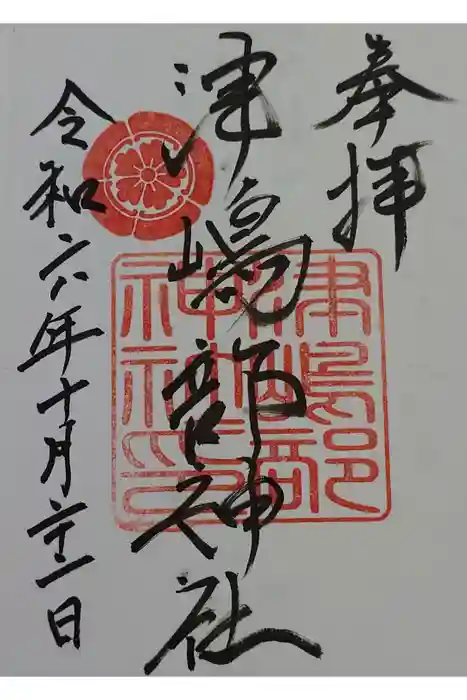 奉拝
津嶋部神社
令和六年十月二十一日
津嶋部
神社印